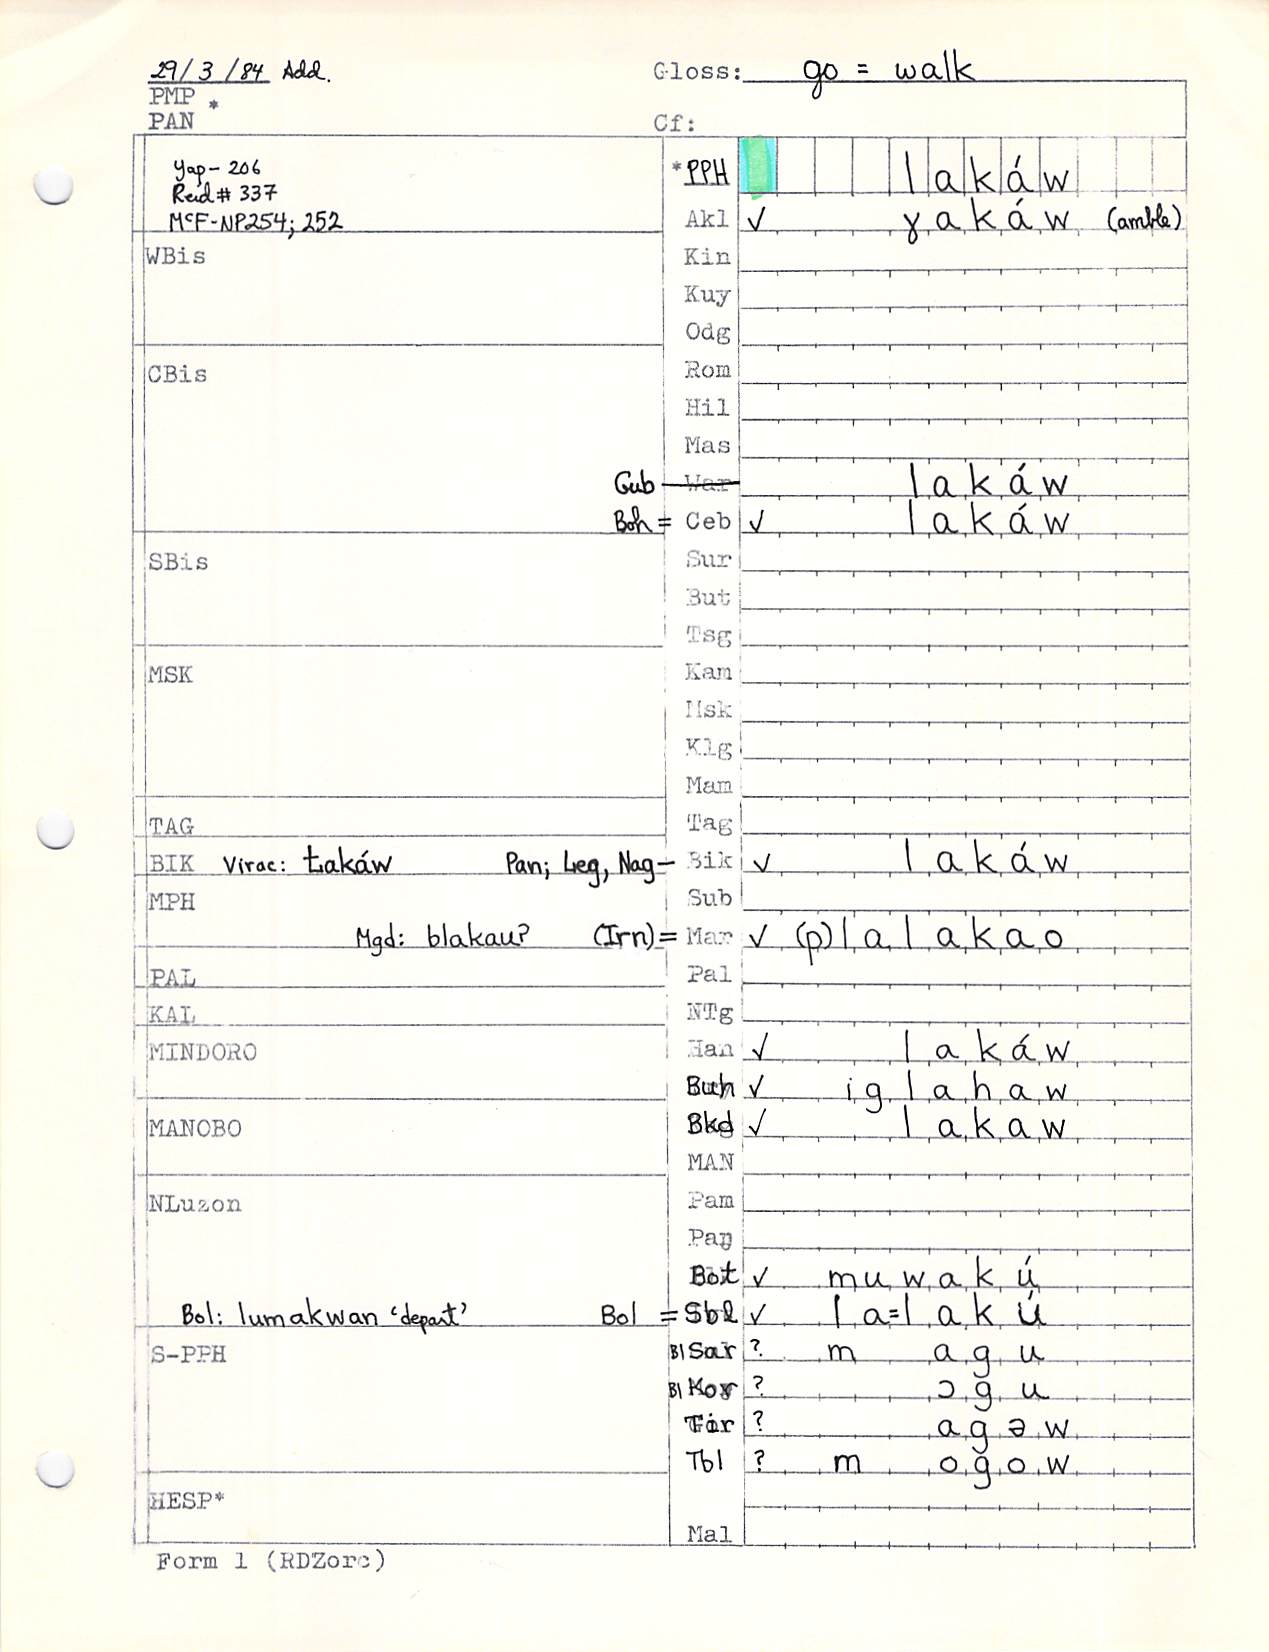 29/3/84 Add. Gloss: go = walk
PMP *
PAN Cf:
Yap- 206 *PPH lakáw
Reid # 337
McF-NP254; 252 Akl ✓ ɣakáw (amble)
WBis Kin
Kuy
Odg
CBis Rom
Hil
Mas
Gub War lakáw
Boh = Ceb ✓ lakáw
SBis Sur
But
Tsg
MSK Kam
Msk
Klg
Mam
TAG Tag
BIK Virac: Łakáw Pan; Leg, Nag- Bik ✓ lakáw
MPH Sub
Mgd: blakau? (Irn)= Mar ✓ (p)lalakao
PAL Pal
KAL NTg
MINDORO Han ✓ lakáw
Buh ✓ iglahaw
MANOBO Bkd ✓ lakaw
MAN
NLuzon Pam
Pan
Bot ✓ muwakú
Bol: lumakwan 'depart' Bol = Sbl ✓ la=lakú
S-PPH Bl Sar ? m agu
Bl Kor ? ɔgu
Tir ? agəw
Tbl ? m ogow
HESP*
Mal
Form 1 (RDZorc)